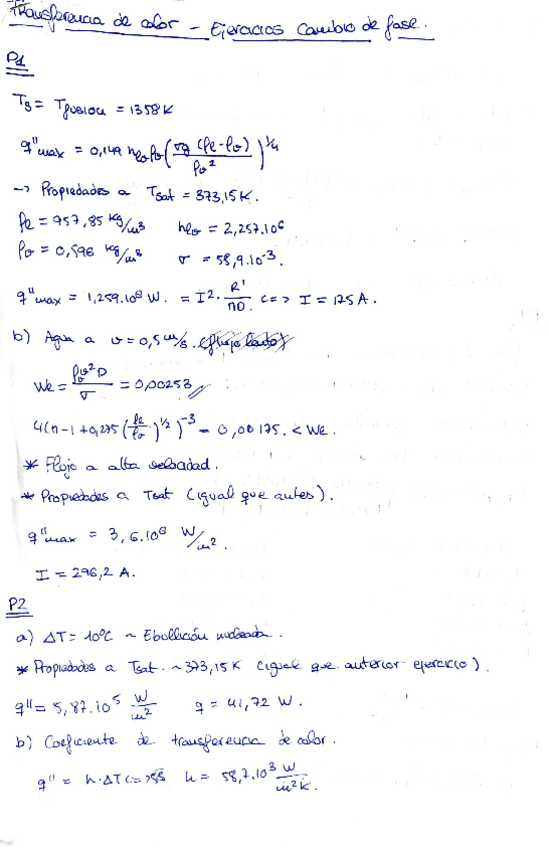 Transferencia de calor - Ejercicios Cambio de fase.
P1
Ts = Tfusion = 1358K
q''max = 0,149 hlv ρv (σg (ρl-ρv) / ρv²)^1/4
-> Propiedades a Tsat = 373,15K.
ρl = 957,85 kg/m³ hlv = 2,257.10⁶
ρv = 0,596 kg/m³ σ = 58,9.10⁻³.
q''max = 1,259.10⁶ W. = I². R'/πD. <=> I = 175 A.
b) Agua a v = 0,5 m/s. (flujo lento)
We = ρv v² D / σ = 0,00253
4(π-1+0,275 (ρl/ρv)^1/2)^-3 = 0,00175. < We.
* Flujo a alta velocidad.
* Propiedades a Tsat (igual que antes).
q''max = 3,6.10⁶ W/m².
I = 296,2 A.
P2
a) ΔT = 10ºC ~ Ebullición nucleada.
* Propiedades a Tsat. ~ 373,15K (igual que anterior ejercicio).
q'' = 5,87.10⁵ W/m² q = 41,72 W.
b) Coeficiente de transferencia de calor.
q'' = h.ΔT <=> h = 58,7.10³ W/m²K.